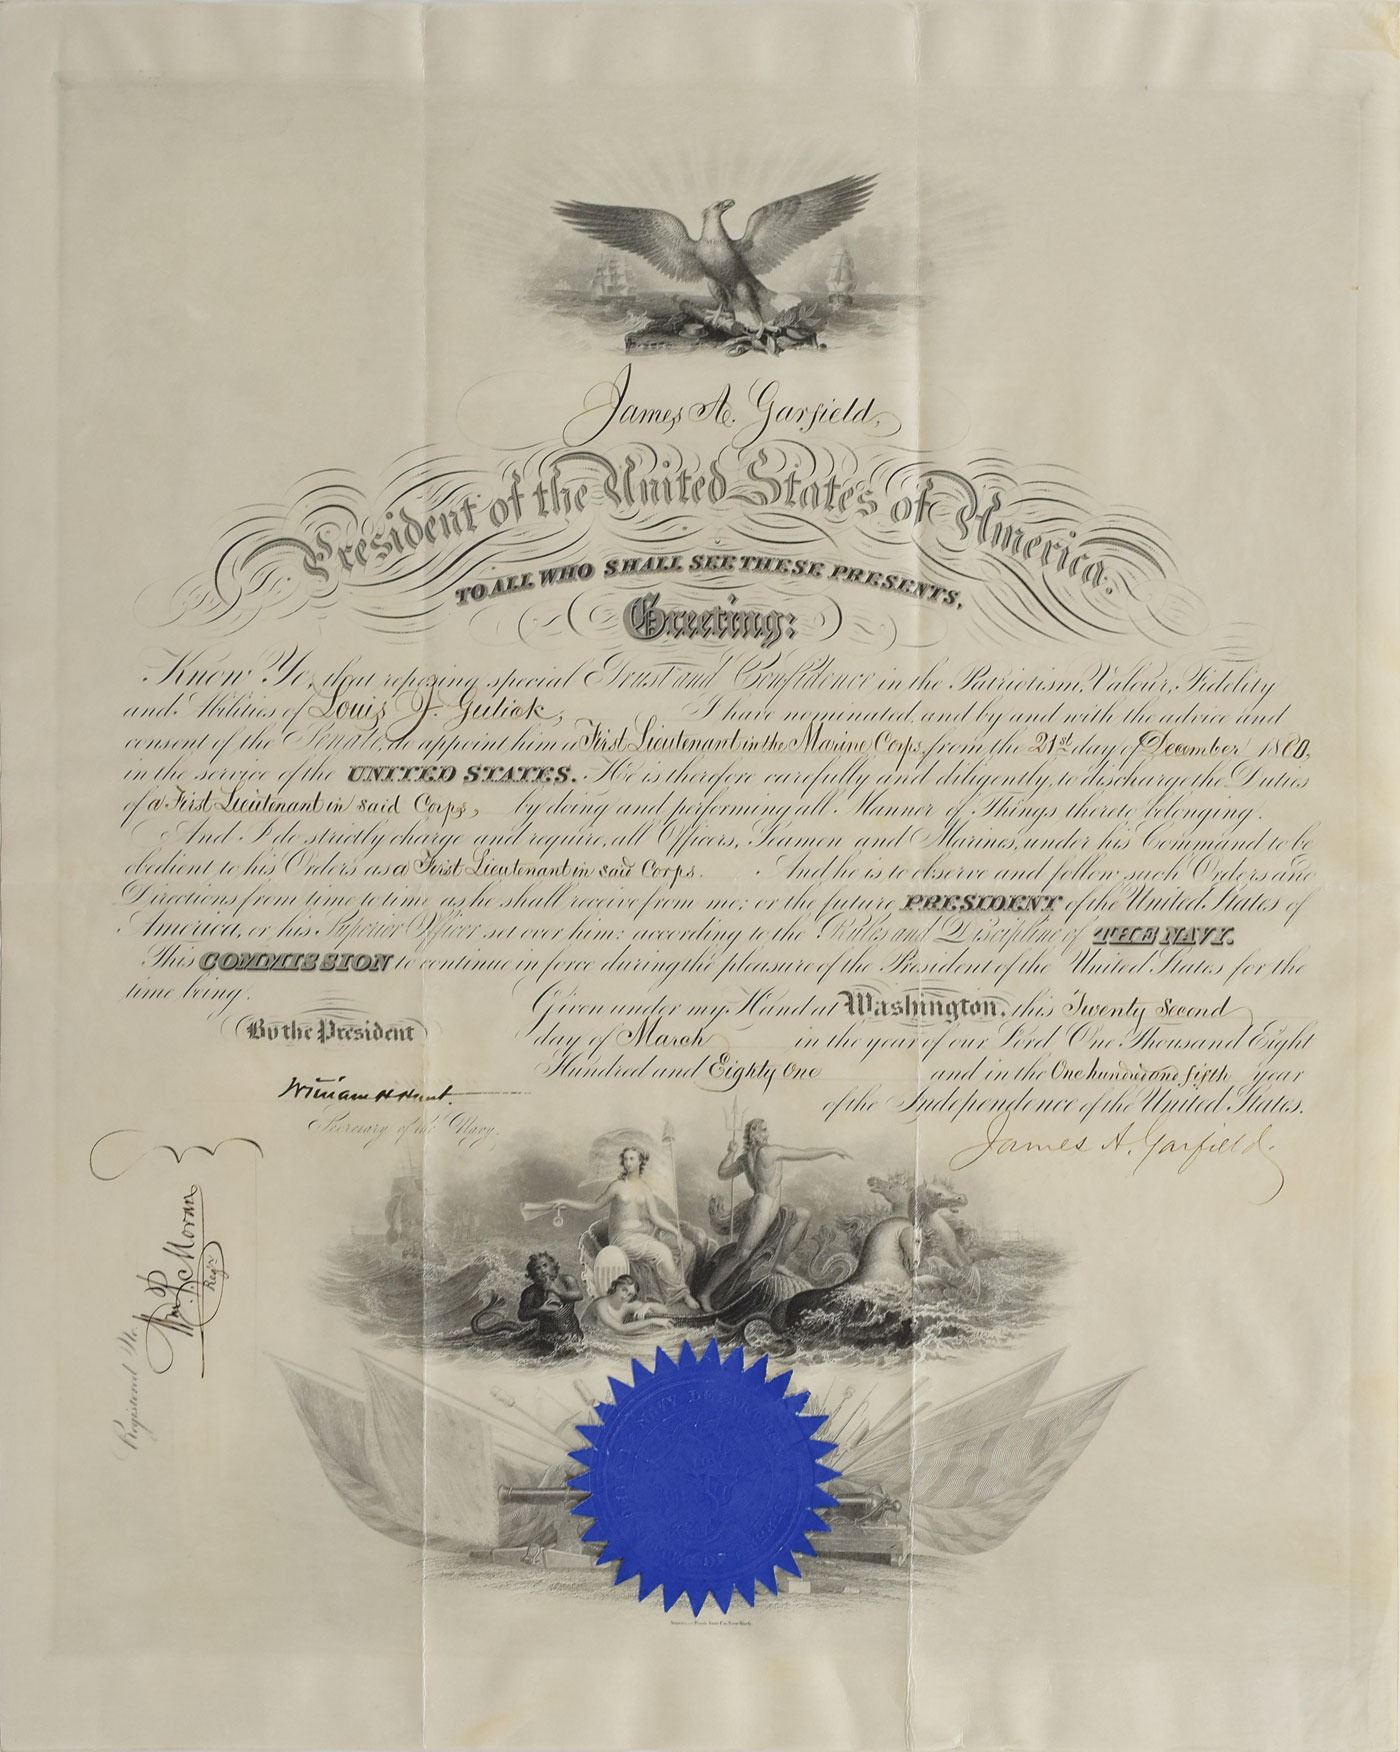 James A. Garfield,
President of the United States of America.
TO ALL WHO SHALL SEE THESE PRESENTS,
Greeting:
Know Ye, that reposing special Trust and Confidence in the Patriotism, Valour, Fidelity
and Abilities of Louis J. Gulick, I have nominated, and by and with the advice and
consent of the Senate, do appoint him a First Lieutenant in the Marine Corps, from the 21st day of December 1880,
in the service of the UNITED STATES. He is therefore carefully and diligently, to discharge the Duties
of a First Lieutenant in said Corps, by doing and performing all Manner of Things thereto belonging.
And I do strictly charge and require, all Officers, Seamen and Marines, under his Command to be
obedient to his Orders as a First Lieutenant in said Corps. And he is to observe and follow such Orders and
Directions from time to time, as he shall receive from me; or the future PRESIDENT of the United States of
America, or his Superior Officer set over him: according to the Rules and Discipline of THE NAVY.
This COMMISSION to continue in force during the pleasure of the President of the United States for the
time being.
Given under my Hand at Washington, this Twenty Second
By the President
day of March in the year of our Lord One Thousand Eight
Hundred and Eighty One and in the One hundred and fifth year
William H Hunt.
of the Independence of the United States.
Secretary of the Navy.
James A. Garfield
Registered No.
Wm. P. Moran
Reg'r